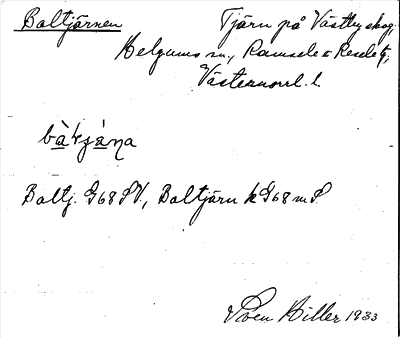 Baltjärnen
Tjärn på Västby skog,
Helgums sn, Ramsele o Resele tg,
Västernorrl. l.
bàḷtjá̱ṇa
Baltj. G68SV, Baltjärn k G68mS
Sven Hiller 1933